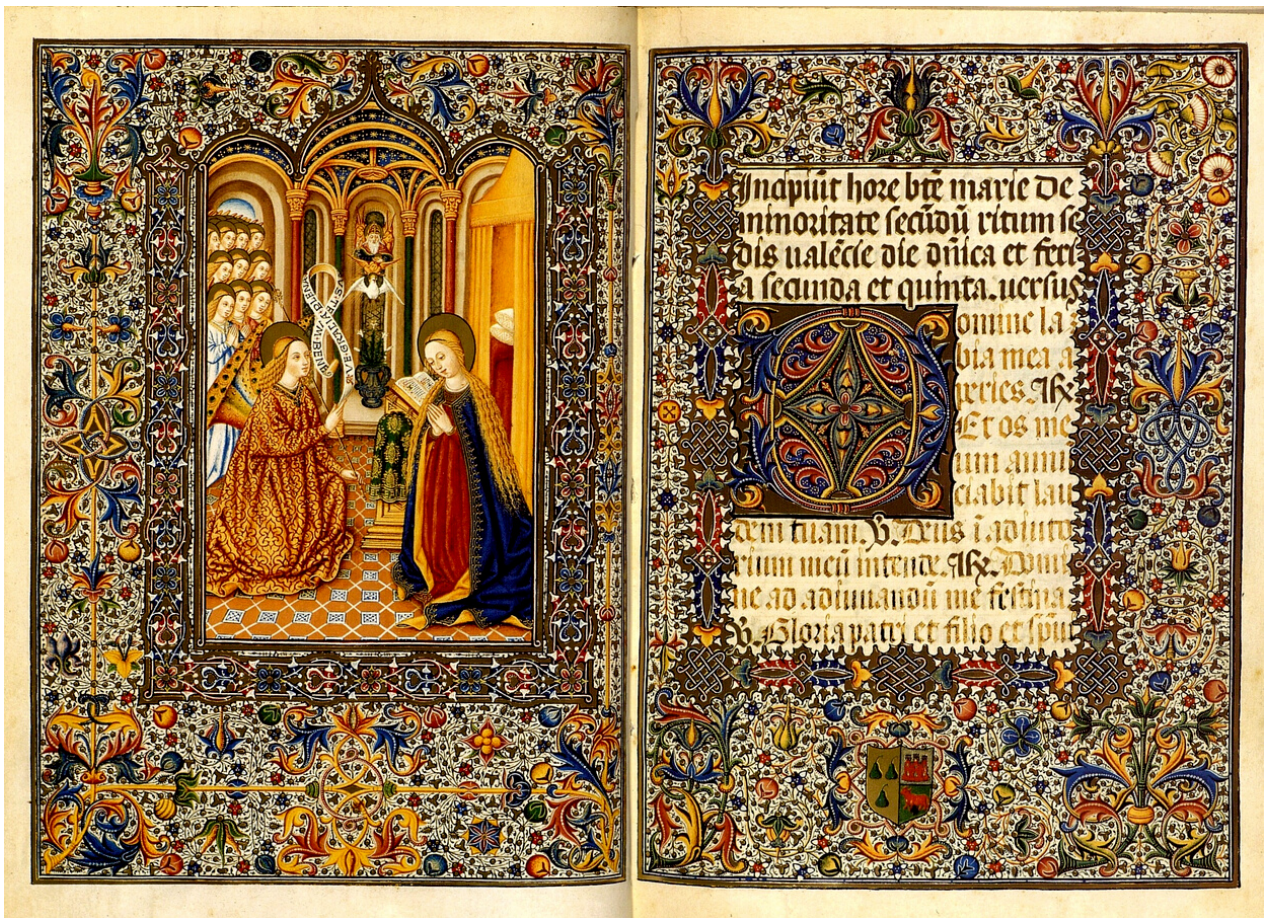 Incipiūt hore btē marie de
minoritate secūdū ritum se
dis ualēcie die dn̄ica et feri
a secunda et quinta. uersus
Domine la
bia mea a
peries. ℟
Et os me
um annū
ciabit lau
dem tuam. ℣. Deus ī adiuto
rium meū intende. ℟. Domi
ne ad adiuuandū me festina
℣. Gloria patri et filio et spūi